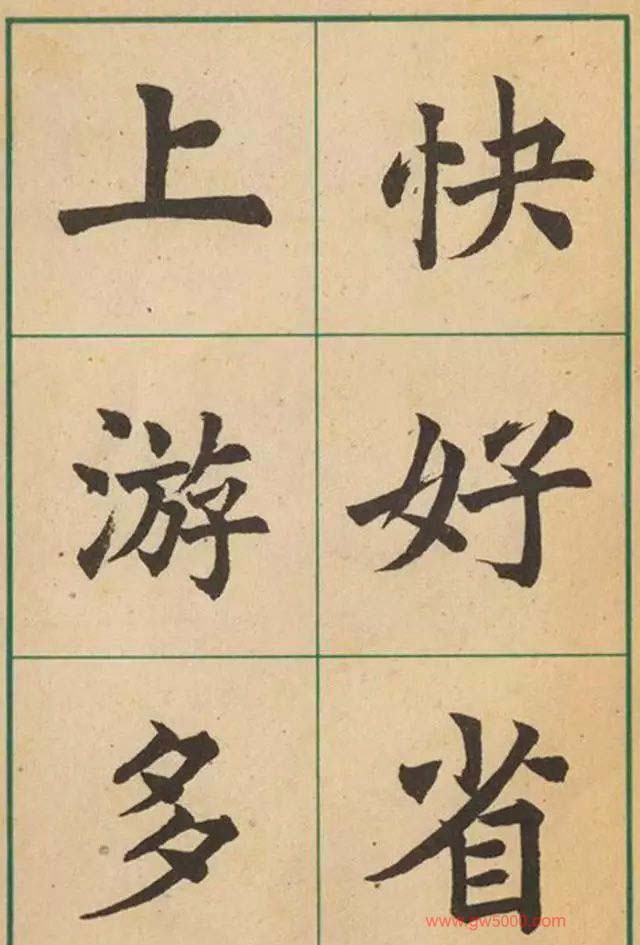 上游多
快好省
www.gw5000.com